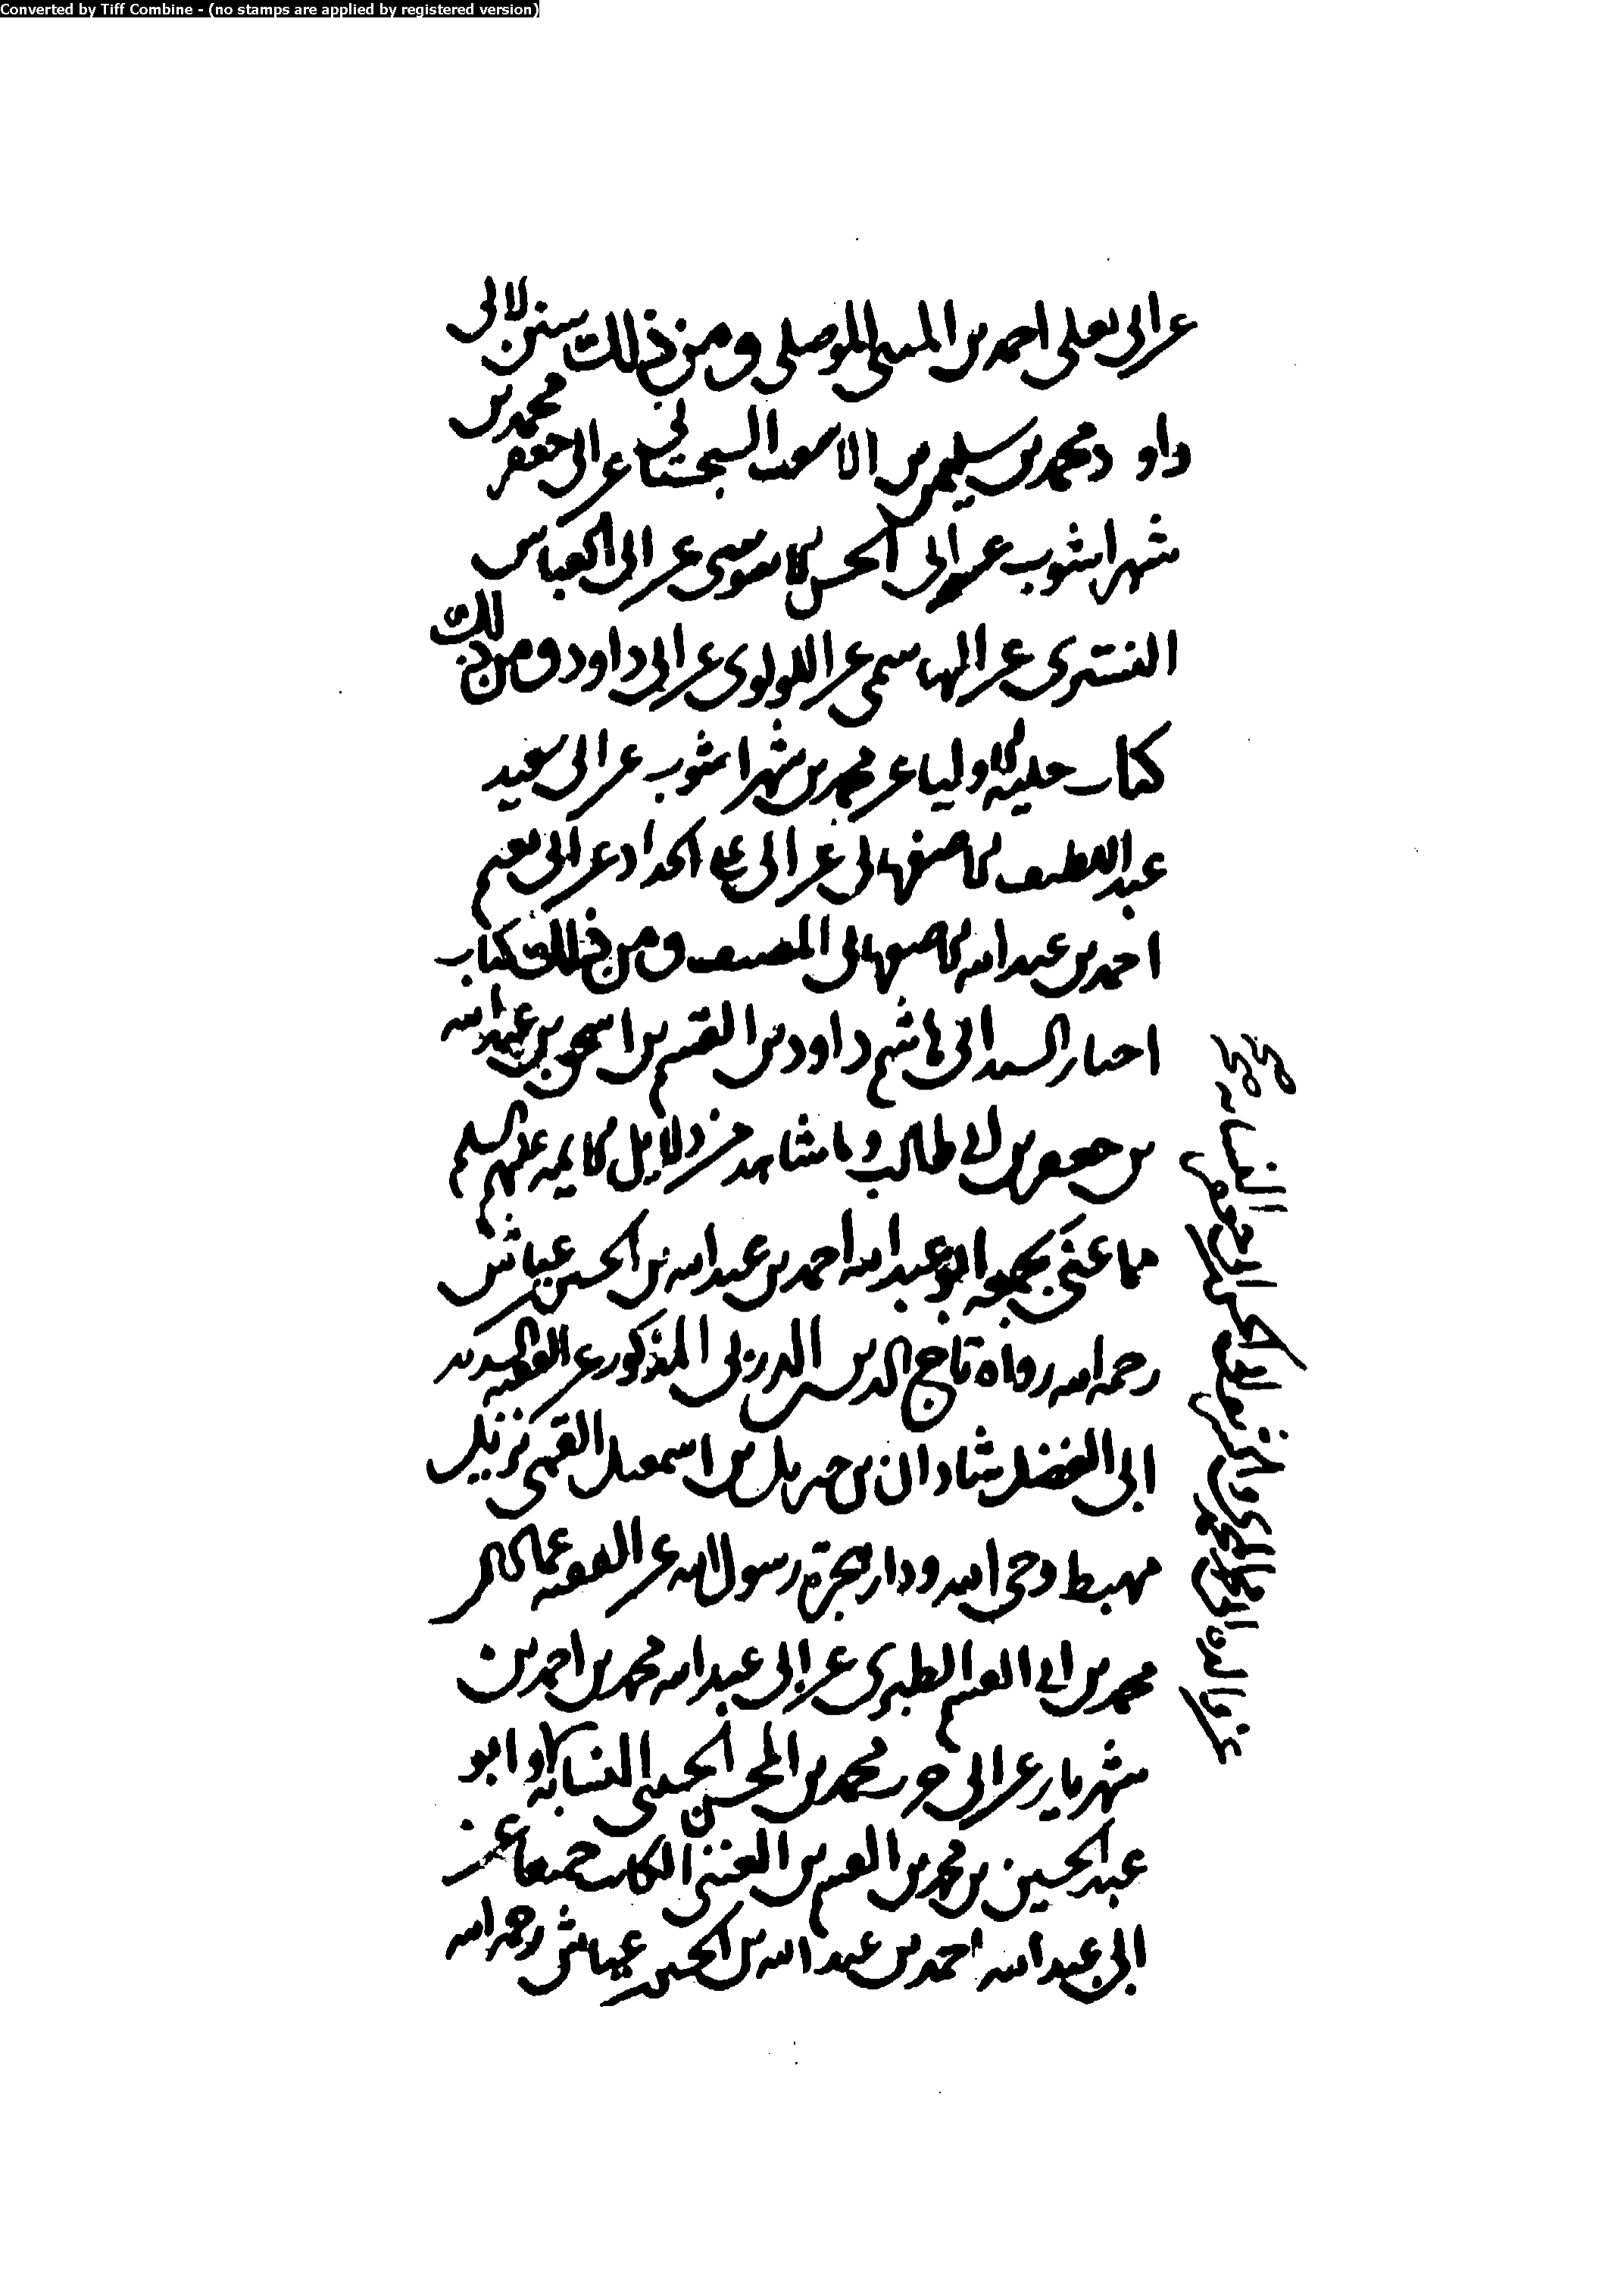 Converted by Tiff Combine - (no stamps are applied by registered version)
عن ابى يعلى احمد بن المثنى الموصلى ومن ذلك سنن لابى
داود محمد بن سليمن بن الاشعث السجستانى عن ابى جعفر محمد بن
شهراشوب عن ابى الحسن الاسوسى عن ابى العباس
التسترى عن الهاشمى عن اللولوى عن ابى داود ومن ذلك
كتاب حلية الاوليا عن محمد بن شهراشوب عن ابى سعيد
عبد اللطيف الاصفهانى عن ابى على الحداد عن ابى نعيم
احمد بن عبد الله الاصفهانى المصنف ومن ذلك كتاب
اخبار السيد ابى هاشم داود بن القسم بن اسحق بن عبد الله
بن جعفر بن ابى طالب وما شاهد من دلايل الايمه عليهم السلم
مما عنى بجمعه ابو عبد الله احمد بن عبد الله بن الحسين عياش
رحمه الله رواه تاج الدين الدربى المذكور عن الفقيه سديد
ابى الفضل شاذان بن جبريل بن اسمعيل القمى نزيل
مهبط وحى الله ودار هجرة رسول الله عن الفقيه عماد
محمد بن ابى القسم الطبرى عن ابى عبد الله محمد بن احمد بن
شهريار عن ابى محمد بن المحسن الحسينى النسابه وابو
عبد الحسين بن محمد بن القسم بن الكاتب جميعا عن
ابى عبد الله احمد بن عبد الله بن الحسين عياش رحمه الله